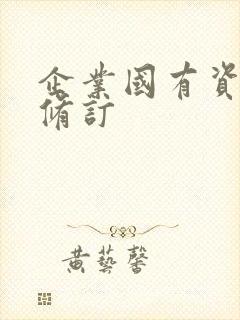 企業國有資
脩訂
黄藝馨